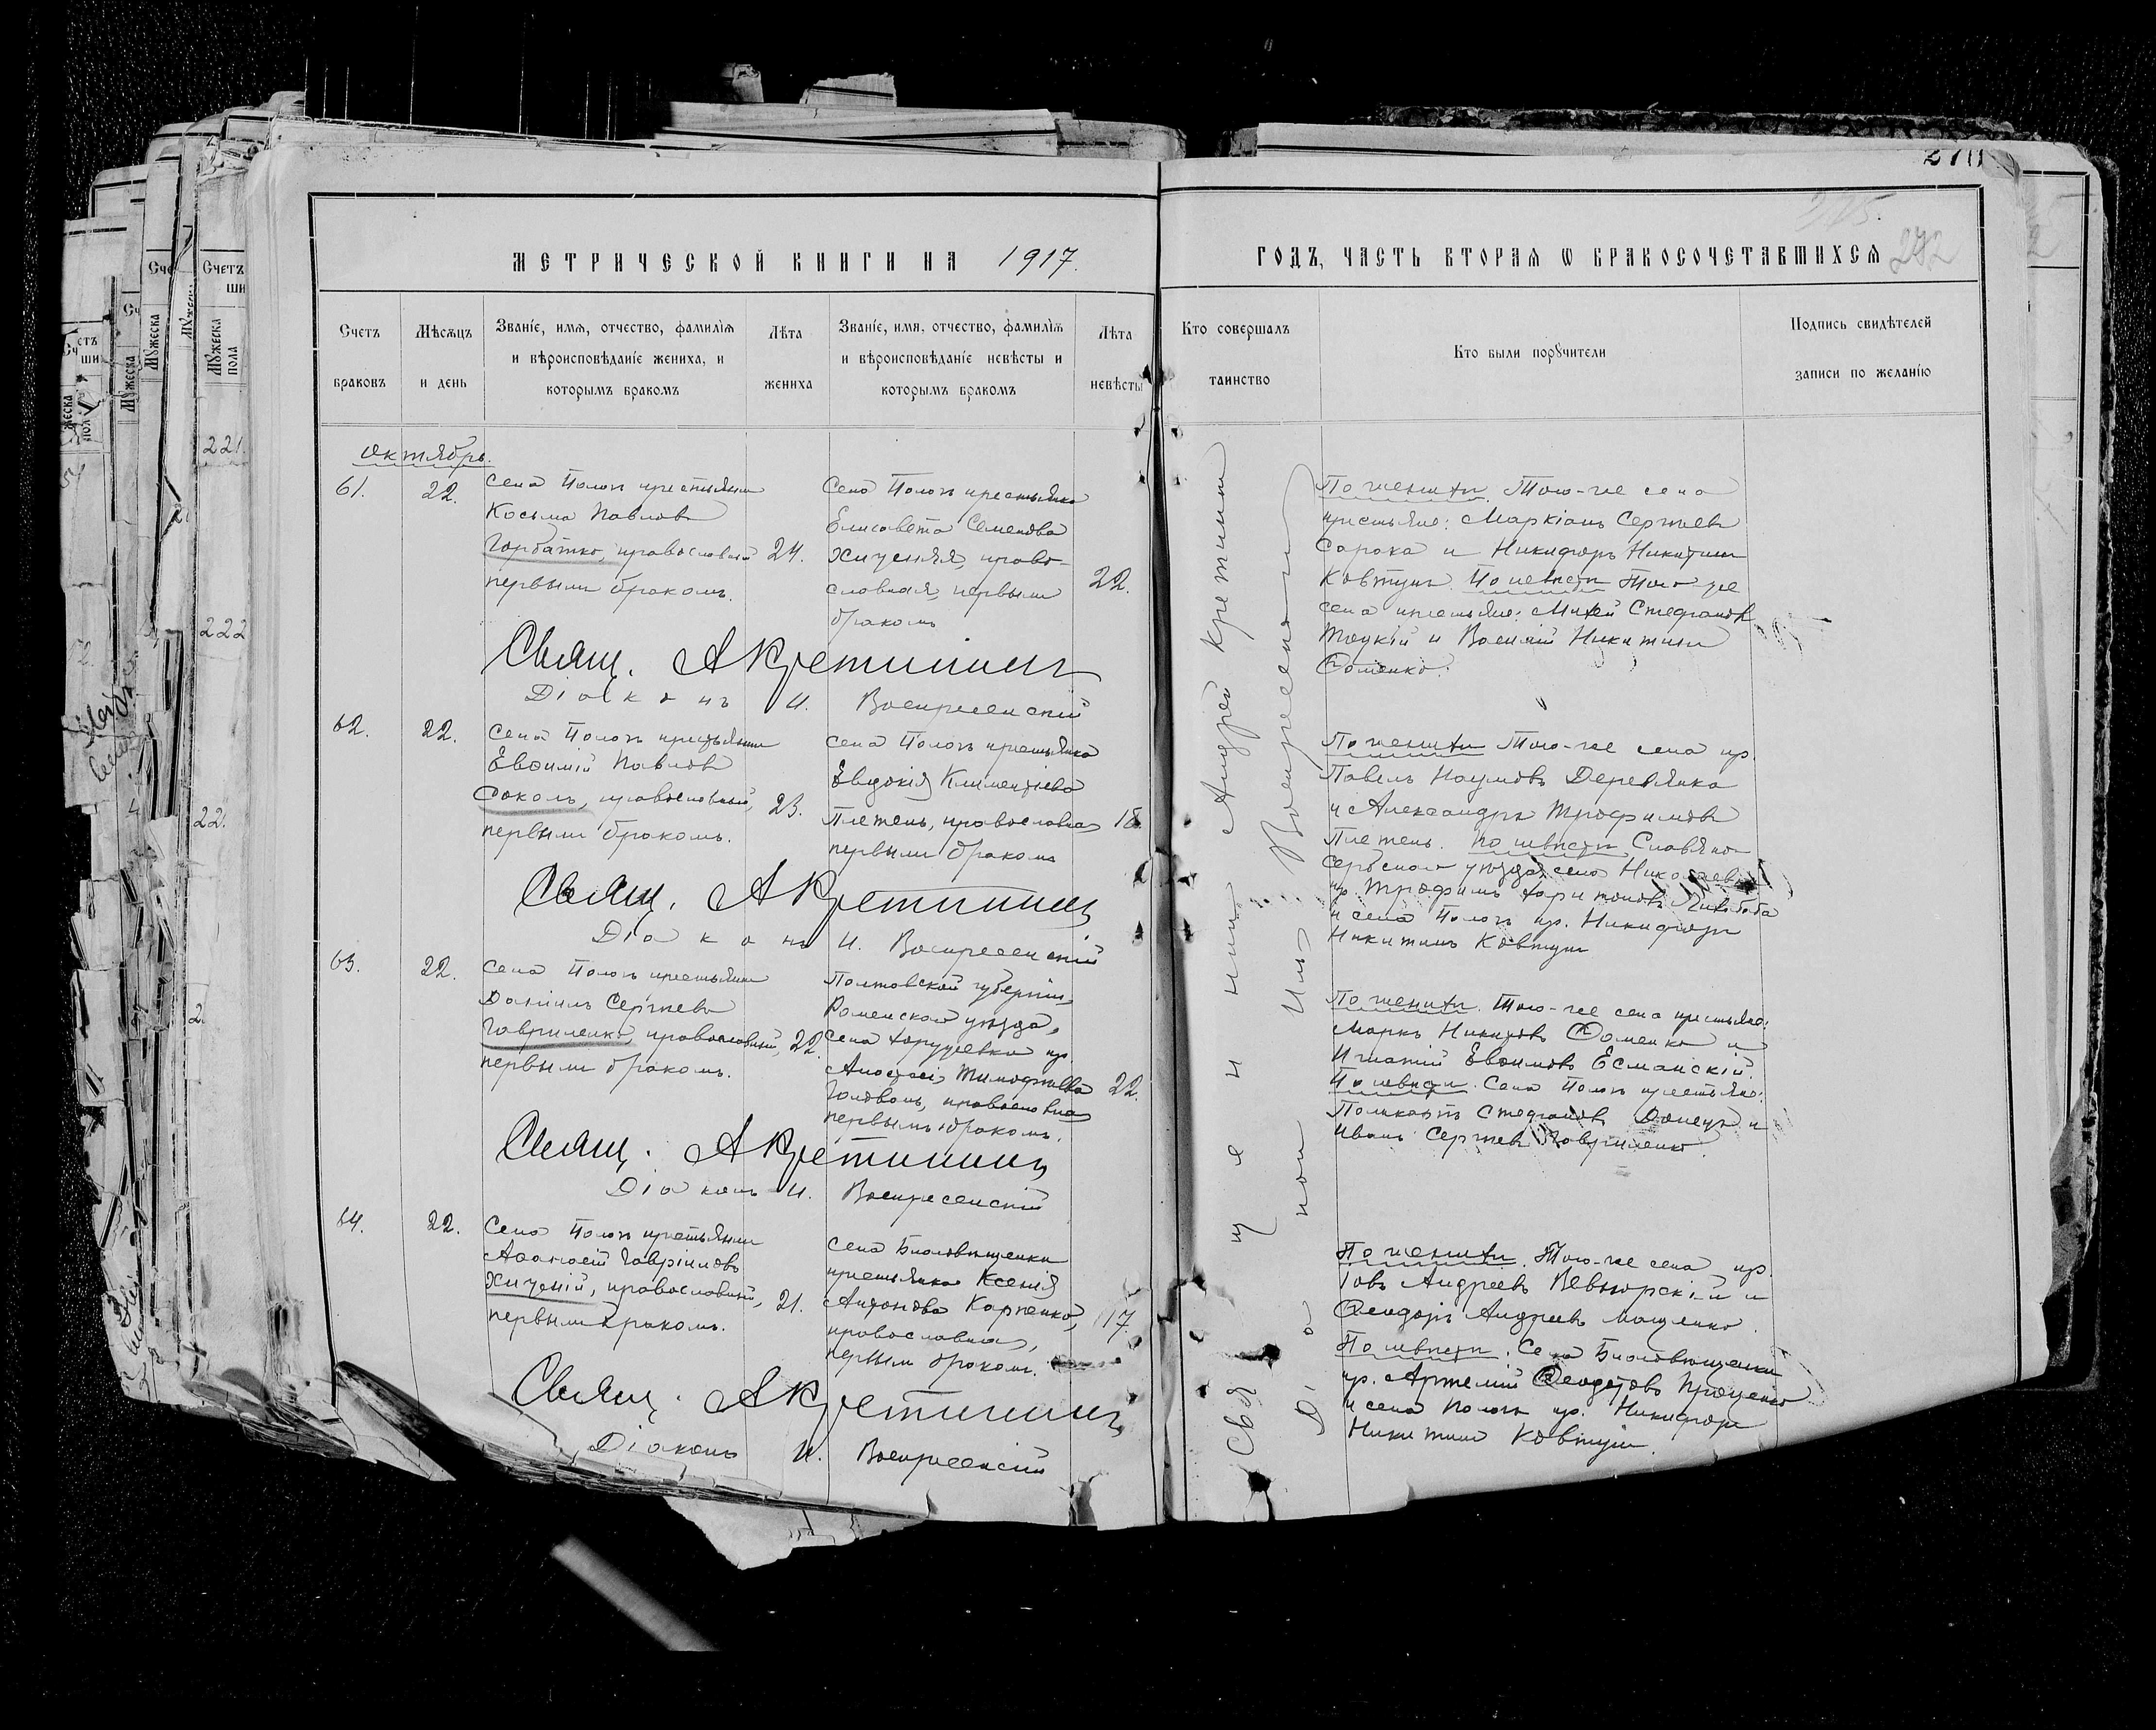 270
272
МЕТРИЧЕСКОЙ КНИГИ НА 1917.
ГОДЪ, ЧАСТЬ ВТОРАЯ Ѡ БРАКОСОЧЕТАВШИХСЯ
Счетъ браковъ
Мѣсяцъ и день
Званіе, имя, отчество, фамилія
и вѣроисповѣданіе жениха, и
которымъ бракомъ
Лѣта жениха
Званіе, имя, отчество, фамилія
и вѣроисповѣданіе невѣсты и
которымъ бракомъ
Лѣта невѣсты
Кто совершалъ таинство
Кто были поручители
Подпись свидѣтелей
записи по желанію
Октябрь.
61.
22.
Села Пологъ крестьянинъ
Косьма Павловъ
Горбатко, православный
первымъ бракомъ.
24.
Села Пологъ крестьянка
Елисавета Семенова
Хиченяя, право-
славная, первымъ
бракомъ
22.
По женихѣ. Того-же села
крестьяне: Маркіанъ Сергѣевъ
Сорока и Никифоръ Никитинъ
Ковтунъ. По невѣстѣ Того-же
села крестьяне: Михей Стефановъ
Троцкій и Василій Никитинъ
Ѳоменко.
Свящ. А Кретининъ
Діаконъ И. Воскресенскій
62.
22.
Села Пологъ крестьянинъ
Евѳимій Павловъ
Соколъ, православный,
первымъ бракомъ.
23.
Села Пологъ крестьянка
Евдокія Климентіева
Плетень, православная
первымъ бракомъ
18.
По женихѣ Того-же села кр.
Павелъ Наумовъ Деревянка
и Александръ Трофимовъ
Плетень. По невѣстѣ Славяно-
сербскаго уѣзда села Николаевки
кр. Трофимъ Харитоновъ
и села Пологъ кр. Никифоръ
Никитинъ Ковтунъ
Свящ. А Кретининъ
Діаконъ И. Воскресенскій
63.
22.
Села Пологъ крестьянинъ
Даніилъ Сергѣевъ
Гавриленко, православный,
первымъ бракомъ.
22.
Полтовской губерніи,
Роменскаго уѣзда,
села Хоружевки кр.
Анастасія Тимофѣева
Головань, православная
первымъ бракомъ.
22.
По женихѣ. Того-же села крестьяне:
Маркъ Никитовъ Ѳоменко и
Игнатій Евѳимовъ Есманскій
По невѣстѣ. Села Пологъ крестьяне:
Поликарпъ Стефановъ Донецъ и
Иванъ Сергѣевъ Гавриленко.
Свящ. А Кретининъ
Діаконъ И. Воскресенскій
64.
22.
Села Пологъ крестьянинъ
Аѳанасій Гавріиловъ
Хиченій, православный,
первымъ бракомъ.
21.
Села Бѣловѣщенки
крестьянка Ксенія
Антонова Карпенко,
православная,
первымъ бракомъ.
17.
По женихѣ. Того-же села кр.
Іовъ Андреевъ Невгорскій и
Ѳеодоръ Андреевъ Мащенко.
По невѣстѣ. Села Бѣловѣщенки
кр. Артемій Ѳеодотовъ Проценко
и села Пологъ кр. Никифоръ
Никитинъ Ковтунъ.
Свящ. А Кретининъ
Діаконъ И. Воскресенскій
Священникъ Андрей Кретининъ
Діаконъ Воскресенскій